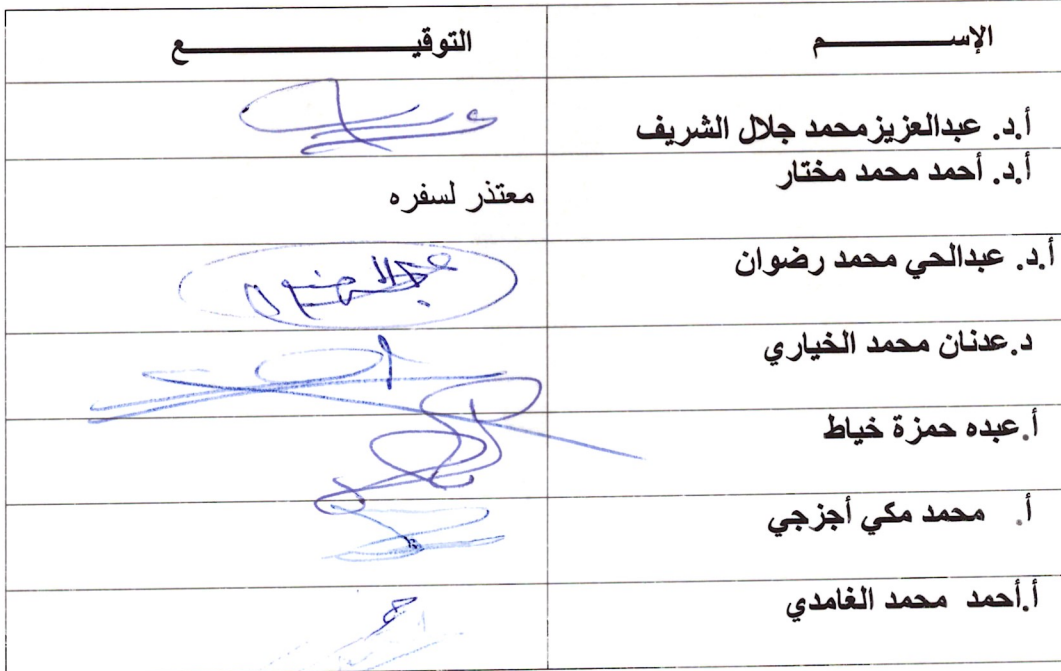 الإســـــــــم
التوقيـــــــــــــع
أ.د. عبدالعزيزمحمد جلال الشريف
أ.د. أحمد محمد مختار
معتذر لسفره
أ.د. عبدالحي محمد رضوان
د.عدنان محمد الخياري
أ.عبده حمزة خياط
أ. محمد مكي أجزجي
أ.أحمد محمد الغامدي